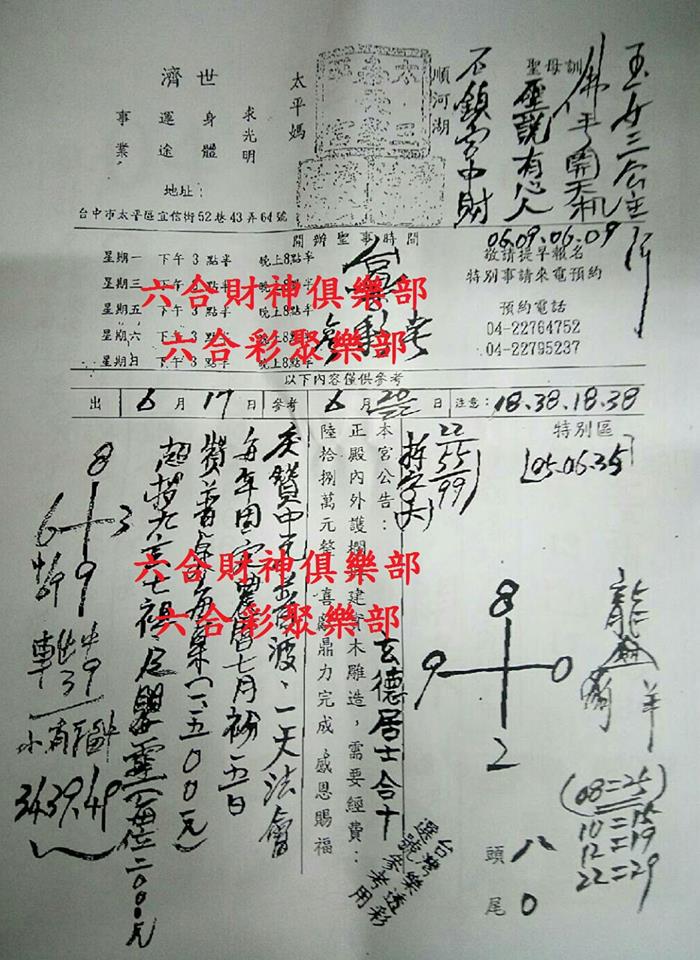 玉女三公主
佛手開天机
聖母訓
聖說有心人
石鎮宮中財
06.09.06.09
順河湖
太平媽
求光明
身體
運途
事業
濟世
地址:
台中市太平區宜信街52巷43弄64號
開辦聖事時間
星期一 下午3點半 晚上8點半
星期三 下午3點半 晚上8點半
星期五 下午3點半 晚上8點半
星期六 下午3點半 晚上8點半
星期日 下午3點半 晚上8點半
敬請提早報名
特別事請來電預約
預約電話
04-22764752
04-22795237
六合財神俱樂部
六合彩聚樂部
以下內容僅供參考
出 6月17日 參考 6月20 22日 注意: 18.38.18.38
特別區
[05.06.35]
22
55
99
本宮公告:
正殿內外護欄 建實木雕造,需要經費:
陸拾捌萬元整 喜 鼎力完成,感恩賜福
玄德居士合十
贊中元普渡.一天法會
每年固定農曆七月初五日
贊普桌每桌(一五00元)
超拔九玄七祖 每位二00元
六合財神俱樂部
六合彩聚樂部
8
6 3
9
39
34.39.49
8
9 0
2
龍
羊
(08=25)
10=15
12=19
22=29
頭 八
尾 0
台灣樂透彩
選號參考用